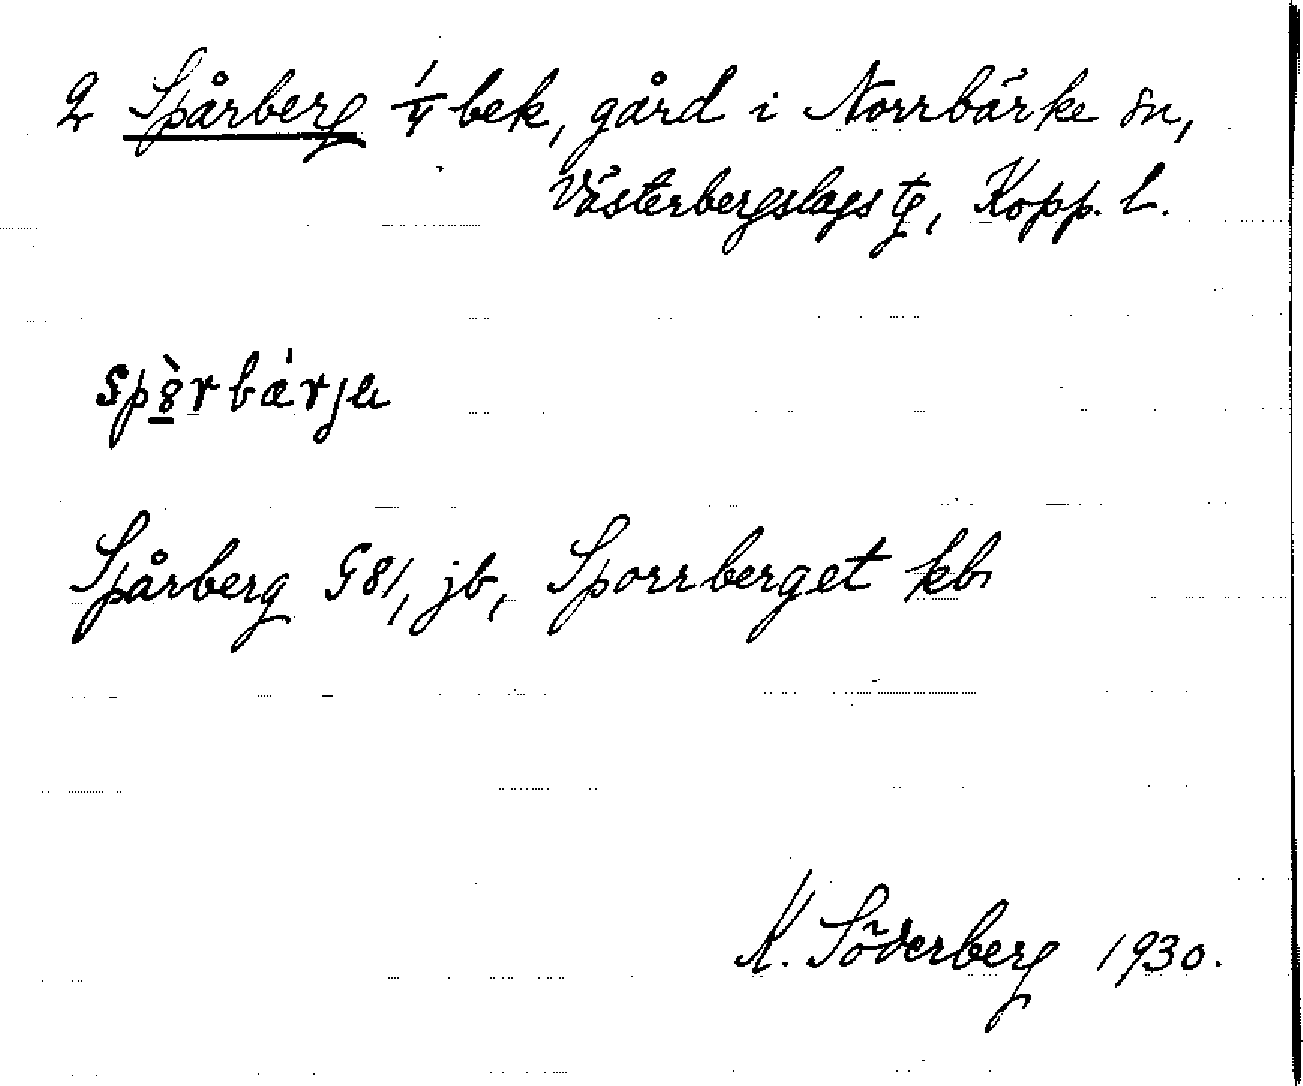 2 Spårberg 1/4 bek, gård i Norrbärke sn,
Västerbergslags tg, Kopp. l.
Spårberg G81, jb, Sporrberget kb
K. Söderberg 1930.